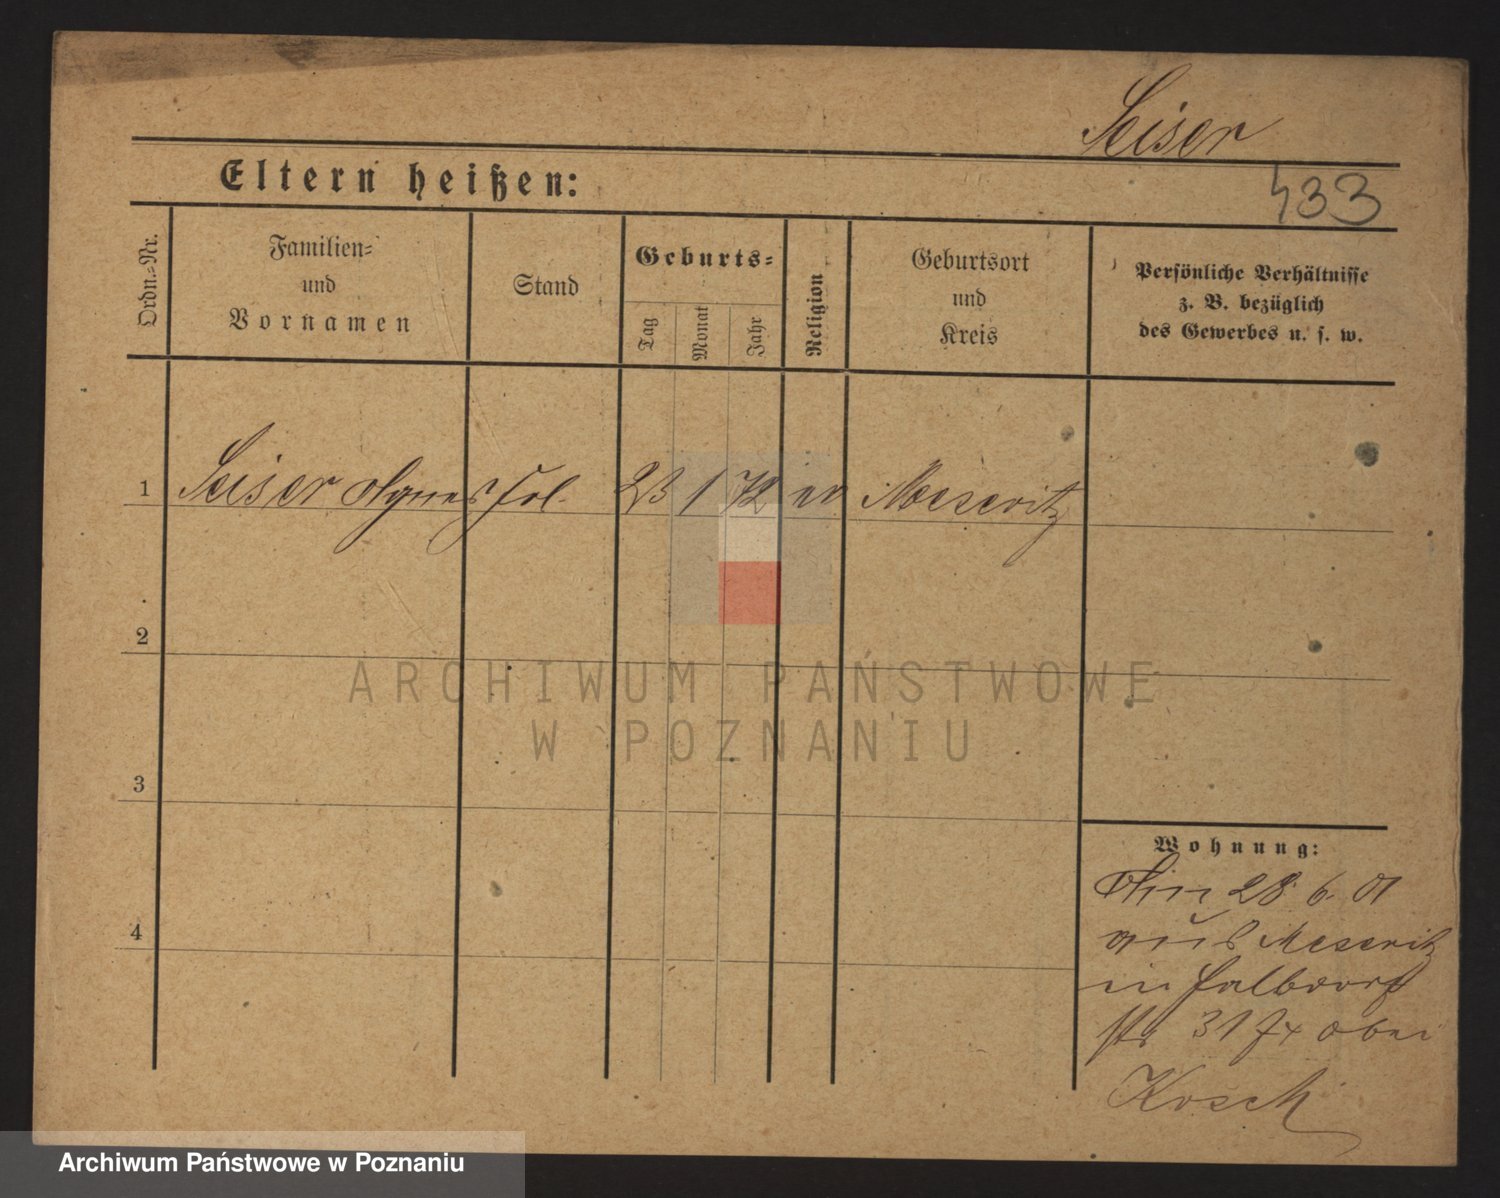 Seiser
433
Eltern heißen:
Ordn.=Nr.
Familien=
und
Vornamen
Stand
Geburts=
Tag
Monat
Jahr
Religion
Geburtsort
und
Kreis
Persönliche Verhältnisse
z. B. bezüglich
des Gewerbes u. s. w.
1 Seiser Agnes Frl. 23 1 72 ev Meseritz
2
3
4
Wohnung:
Am 28. 6. 01
aus Meseritz
in
str 31 bei
ARCHIWUM PAŃSTWOWE
W POZNANIU
Archiwum Państwowe w Poznaniu